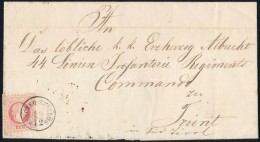 An
Das löbliche k. k. Erzherzog Albrecht
44 Linien Infanterie Regiments
Commando
zu
Trient
in Tirol